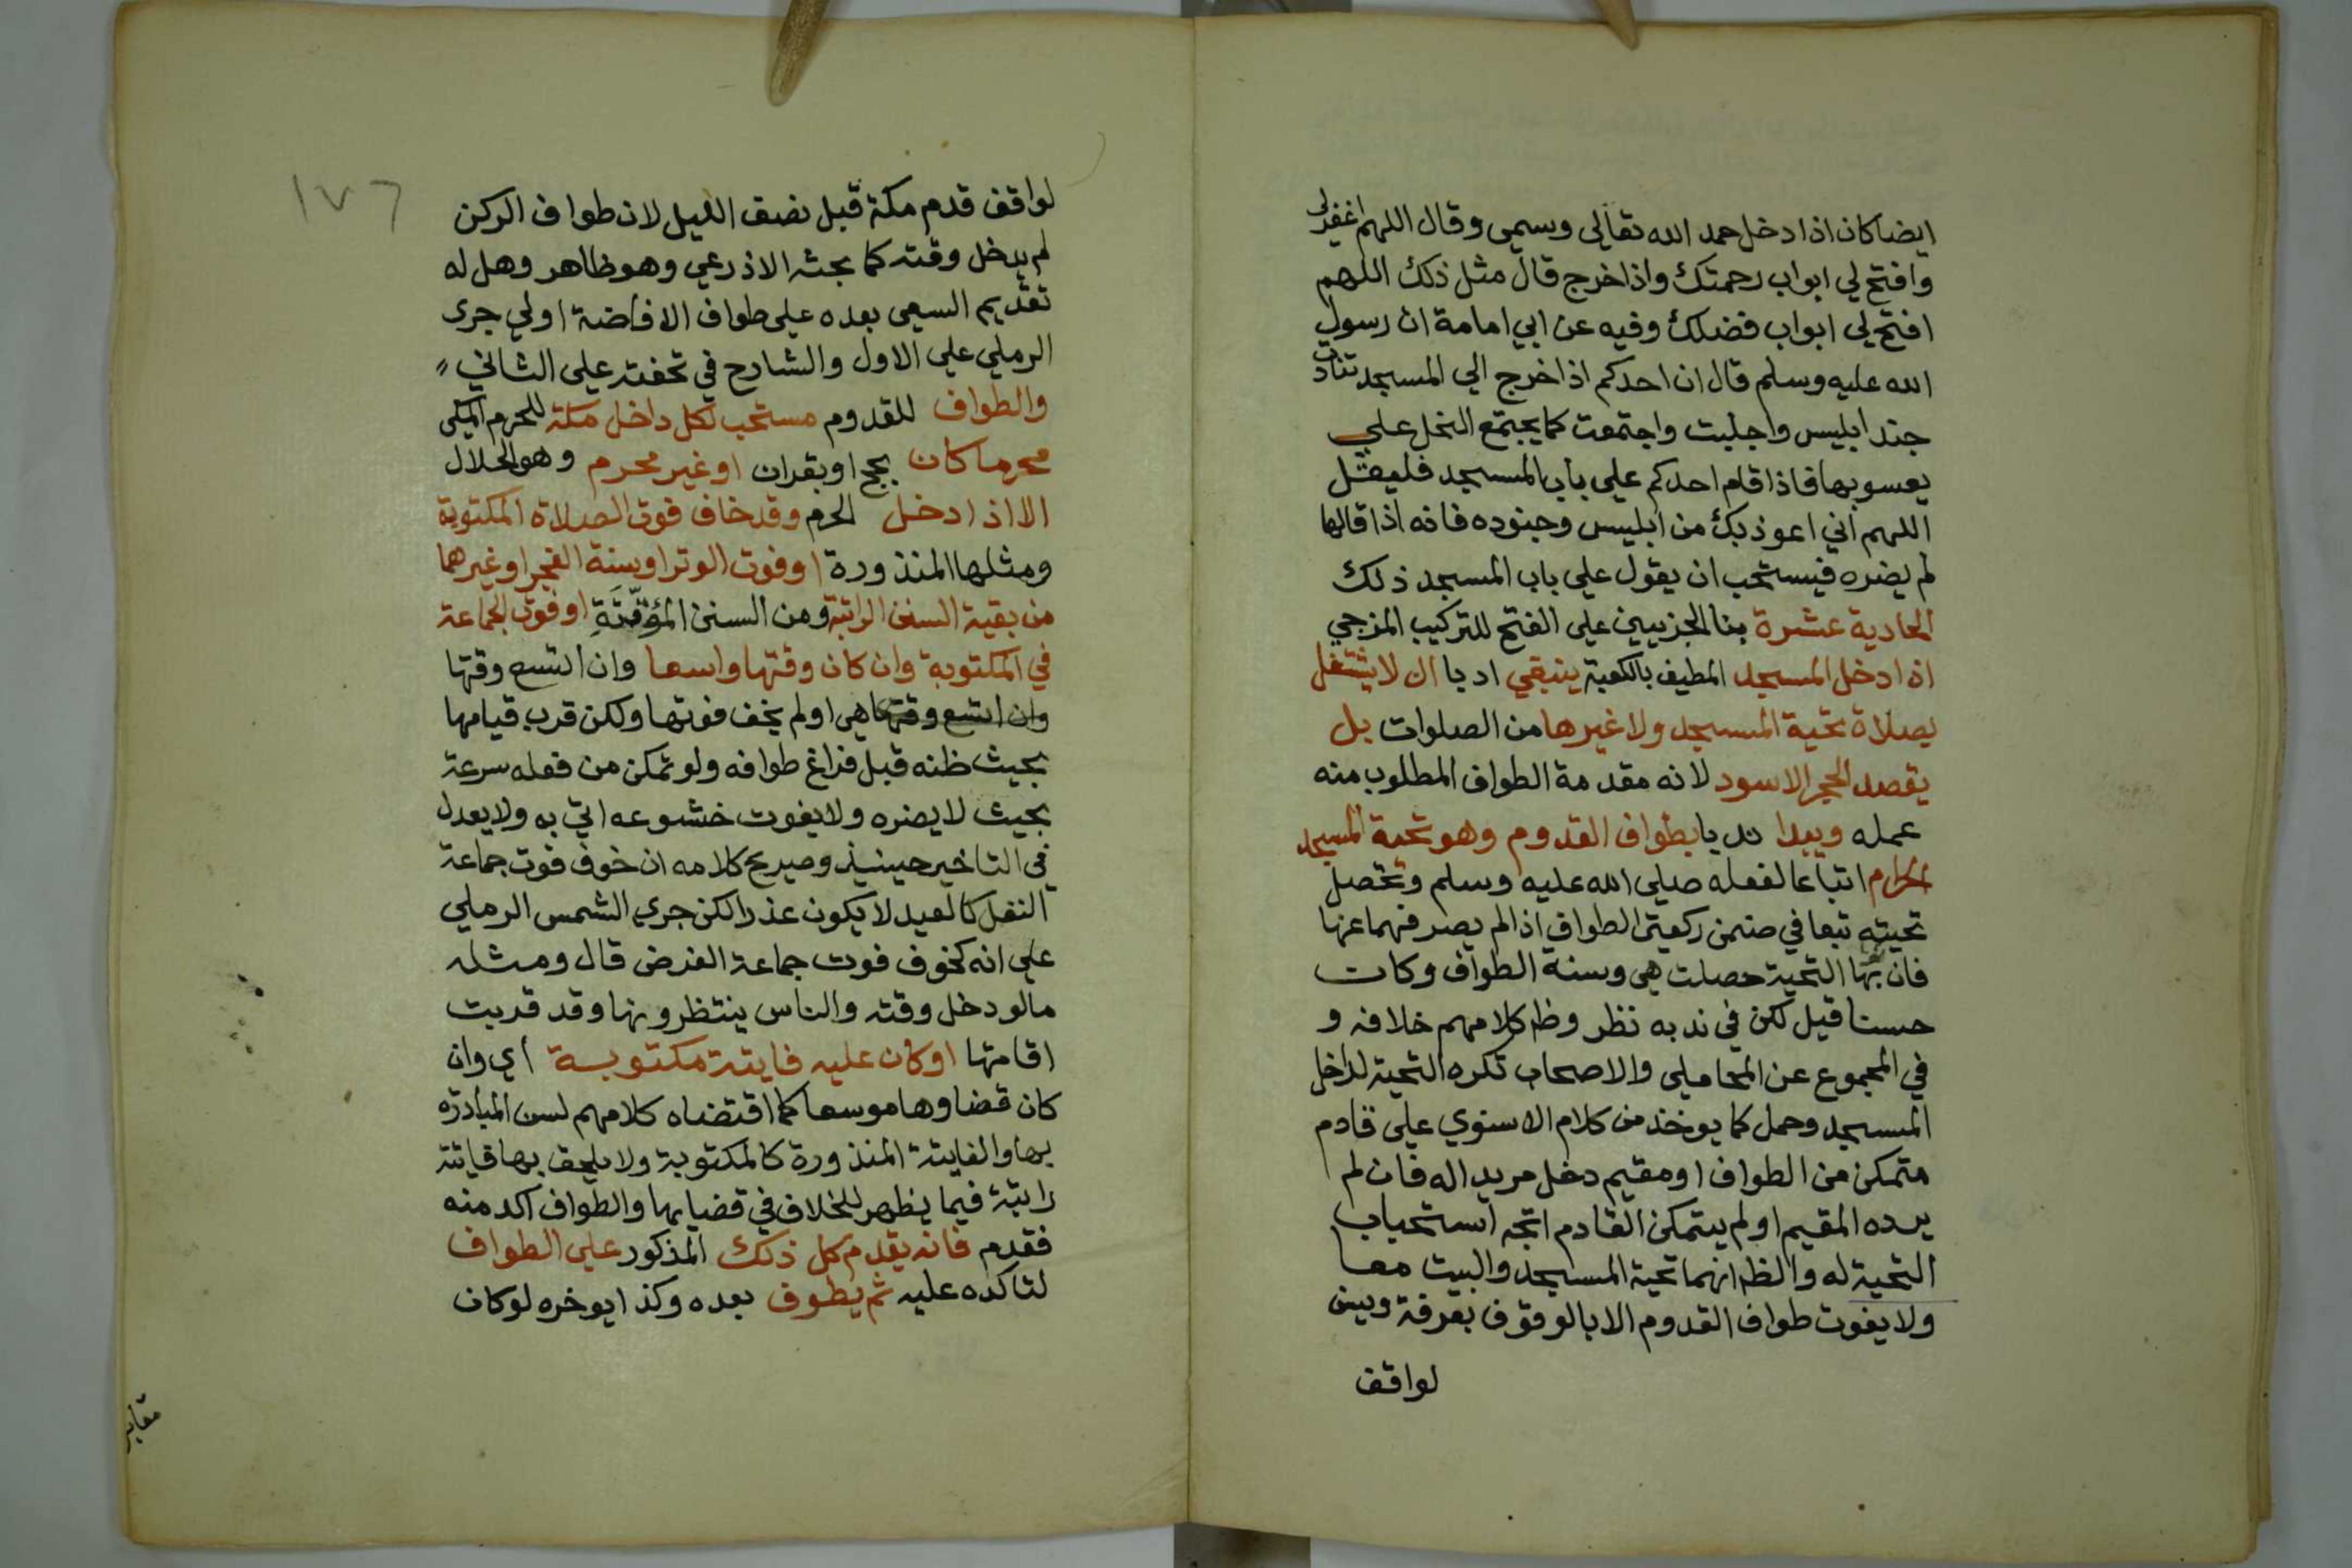 ايضا كان اذا دخل حمد الله تعالى وسمى وقال اللهم اغفر لى
وافتح لي ابواب رحمتك واذا خرج قال مثل ذلك اللهم
افتح لي ابواب فضلك وفيه عن ابي امامة ان رسول
الله عليه وسلم قال ان احدكم اذا خرج الي المسجد تنادت
جند ابليس واجلبت واجتمعت كما يجتمع النحل علي
يعسوبها فاذا قام احدكم علي باب المسجد فليقل
اللهم اني اعوذ بك من ابليس وجنوده فانه اذا قالها
لم يضره فيستحب ان يقول علي باب المسجد ذلك
الحادية عشرة بنا الجزيين علي الفتح للتركيب المزجي
اذا دخل المسجد المطيف بالكعبة ينبغي ادبا ان لا يشتغل
بصلاة تحية المسجد ولا غيرها من الصلوات بل
يقصد الحجر الاسود لانه مقدمة الطواف المطلوب منه
عمله ويبدا ندبا بطواف القدوم وهو تحية المسجد
الحرام اتباعا لفعله صلي الله عليه وسلم وتحصل
تحيته تبعا في ضمن ركعتي الطواف اذا لم يصرفهما عنها
فان بها التحية حصلت هي وسنة الطواف وكان
حسنا قيل لكن في ندبه نظر وظ كلامهم خلافه و
في المجموع عن المحاملي والاصحاب تكره التحية لداخل
المسجد وحمل كما يوخذ من كلام الاسنوي علي قادم
متمكن من الطواف او مقيم دخل مريدا له فان لم
يرده المقيم او لم يتمكن القادم اتجه استحباب
التحية له والظ انهما تحية المسجد والبيت معا
ولا يفوت طواف القدوم الا بالوقوف بعرفة وبين
لواقف
١٧٦
لواقف قدم مكة قبل نصف الليل لان طواف الركن
لم يدخل وقته كما بحثه الاذرعي وهو ظاهر وهل له
تقديم السعي بعده علي طواف الافاضة اولي جرى
الرملي علي الاول والشارح في تحفته علي الثاني
والطواف للقدوم مستحب لكل داخل مكة للحرم المكى
محرما كان بحج او بقران او غير محرم وهو الحلال
الا اذا دخل الحرم وقد خاف فوت الصلاة المكتوبة
ومثلها المنذورة او فوت الوتر او سنة الفجر او غيرهما
من بقية السنن الراتبة ومن السنن المؤقتة او فوت الجماعة
في المكتوبة وان كان وقتها واسعا وان اتسع وقتها
وان اتسع وقتها هي او لم يخف فوتها ولكن قرب قيامها
بحيث ظنه قبل فراغ طوافه ولو تمكن من فعله سرعة
بحيث لا يضره ولا يفوت خشوعه اتي به ولا يعدل
في التاخير حينيذ وصريح كلامه ان خوف فوت جماعة
النفل كالعيد لا يكون عذرا لكن جري الشمس الرملي
علي انه كخوف فوت جماعة الفرض قال ومثله
ما لو دخل وقته والناس ينتظرونها وقد قربت
اقامتها او كان عليه فايتة مكتوبة أي وان
كان قضاوها موسعا كما اقتضاه كلامهم لسن المبادرة
بها والفايتة المنذورة كالمكتوبة ولا يلحق بها فايتة
راتبة فيما يظهر للخلاف في قضايها والطواف اكد منه
فقدم فانه يقدم كل ذلك المذكور علي الطواف
لتاكده عليه ثم يطوف بعده وكذا يوخره لو كان